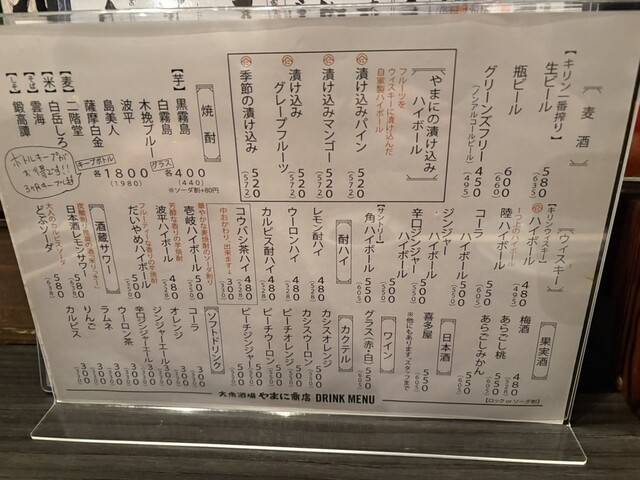 麦酒
【キリン一番搾り】
生ビール 580 (635)
瓶ビール 600 (660)
グリーンズフリー 450 (495)
(ノンアルコールビール)
やまにの漬け込みハイボール
フルーツを
ウイスキーに漬け込んだ
自家製ハイボール
漬け込みパイン 520 (572)
漬け込みマンゴー 520 (572)
漬け込みグレープフルーツ 520 (572)
季節の漬け込み 520 (572)
焼酎
【芋】
黒霧島
白霧島
木挽ブルー
波平
島美人
薩摩白金
【麦】
二階堂
【米】
白岳しろ
【そば】
雲海
鍛高譚
グラス 各400 (440)
※ソーダ割+80円
キープボトル 各1800 (1980)
ボトルキープが
お得です!!
3ヶ月キープOK!!
ウイスキー
【キリンウイスキー】
陸ハイボール 480 (528)
コーラハイボール 550 (605)
ジンジャーハイボール 500 (550)
辛口ジンジャーハイボール 500 (550)
【サントリー】
角ハイボール 550
酎ハイ
レモン酎ハイ 480 (528)
ウーロンハイ 480 (528)
カルピス酎ハイ 480 (528)
コウバシ茶ハイ 480 (528)
中おかわり出来ます→ 300
華やかな麦焼酎のソーダ割り
壱岐ハイボール 500
芳醇な香りの芋焼酎
波平ハイボール 480
フルーティな香りの芋焼酎
だいやめハイボール 550
酒蔵サワー
日本酒レモンサワー 580
大人のカルピスソーダ
どぶソーダ 580
果実酒
梅酒 480 (528)
あらごし桃 550 (605)
あらごしみかん 550 (605)
【ロック or ソーダ割】
日本酒
喜多屋 550 (605)
※他にもあります。スタッフまで
ワイン
グラス(赤・白) 550 (605)
カクテル
カシスオレンジ 510
カシスウーロン 510
ピーチオレンジ 510
ピーチウーロン 510
ピーチジンジャー 510
ソフトドリンク
コーラ 300
オレンジ 300
ジンジャーエール 300
辛口ジンジャーエール 300
ウーロン茶 300
ラムネ 300
りんご 300
カルピス 300
大衆酒場 やまに商店 DRINK MENU